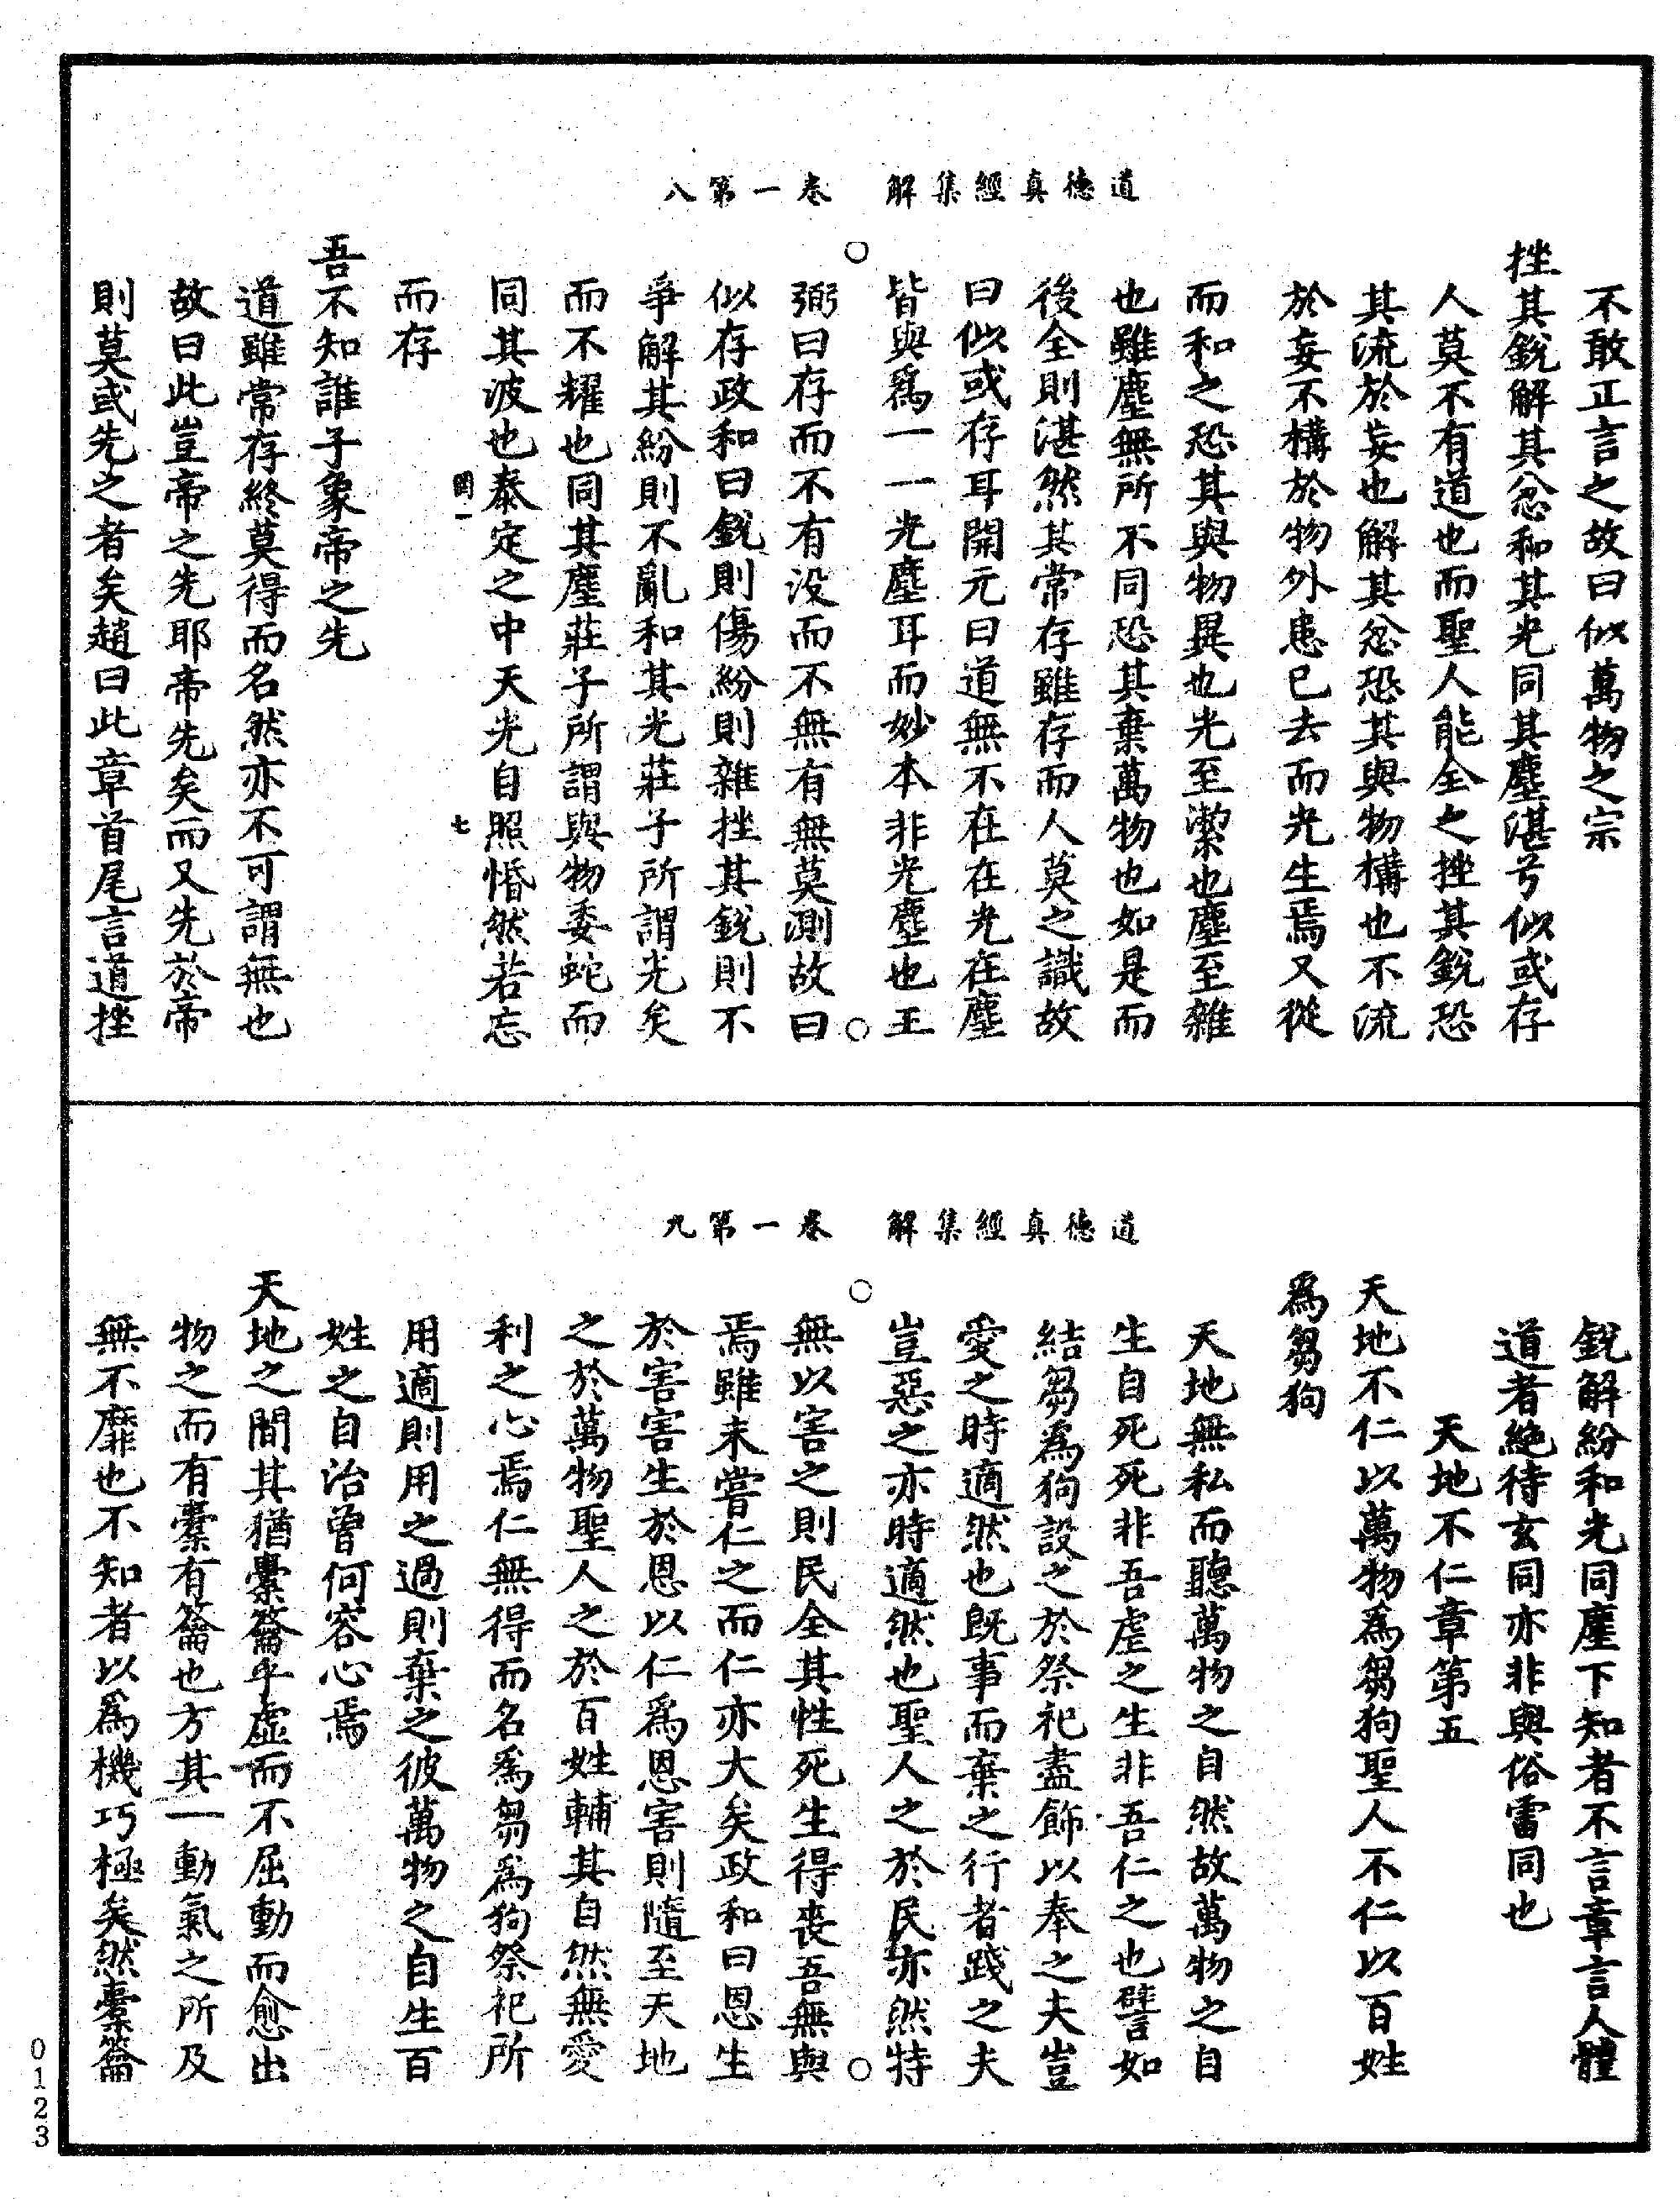 道德真經集解　卷一第八
不敢正言之故曰似萬物之宗
挫其銳解其忿和其光同其塵湛兮似或存
人莫不有道也而聖人能全之挫其銳恐
其流於妄也解其忿恐其與物構也不流
於妄不構於物外患已去而光生焉又從
而和之恐其與物異也光至潔也塵至雜
也雖塵無所不同恐其棄萬物也如是而
後全則湛然其常存雖存而人莫之識故
曰似或存耳開元曰道無不在在光在塵
皆與爲一一光塵耳而妙本非光塵也王
弼曰存而不有没而不無有無莫測故曰
似存政和曰銳則傷紛則雜挫其銳則不
爭解其紛則不亂和其光莊子所謂光矣
而不耀也同其塵莊子所謂與物委蛇而
同其波也泰定之中天光自照惛然若忘
罔一　七
而存
吾不知誰子象帝之先
道雖常存終莫得而名然亦不可謂無也
故曰此豈帝之先耶帝先矣而又先於帝
則莫或先之者矣趙曰此章首尾言道挫
道德真經集解　卷一第九
銳解紛和光同塵下知者不言章言人體
道者絶待玄同亦非與俗雷同也
天地不仁章第五
天地不仁以萬物為芻狗聖人不仁以百姓
為芻狗
天地無私而聽萬物之自然故萬物之自
生自死死非吾虐之生非吾仁之也譬如
結芻為狗設之於祭祀盡飾以奉之夫豈
愛之時適然也既事而棄之行者踐之夫
豈惡之亦時適然也聖人之於民亦然特
無以害之則民全其性死生得喪吾無與
焉雖未嘗仁之而仁亦大矣政和曰恩生
於害害生於恩以仁爲恩害則隨至天地
之於萬物聖人之於百姓輔其自然無愛
利之心焉仁無得而名爲芻爲狗祭祀所
用適則用之過則棄之彼萬物之自生百
姓之自治曾何容心焉
天地之間其猶橐籥乎虛而不屈動而愈出
物之而有橐有籥也方其一動氣之所及
無不靡也不知者以爲機巧極矣然橐籥
0123